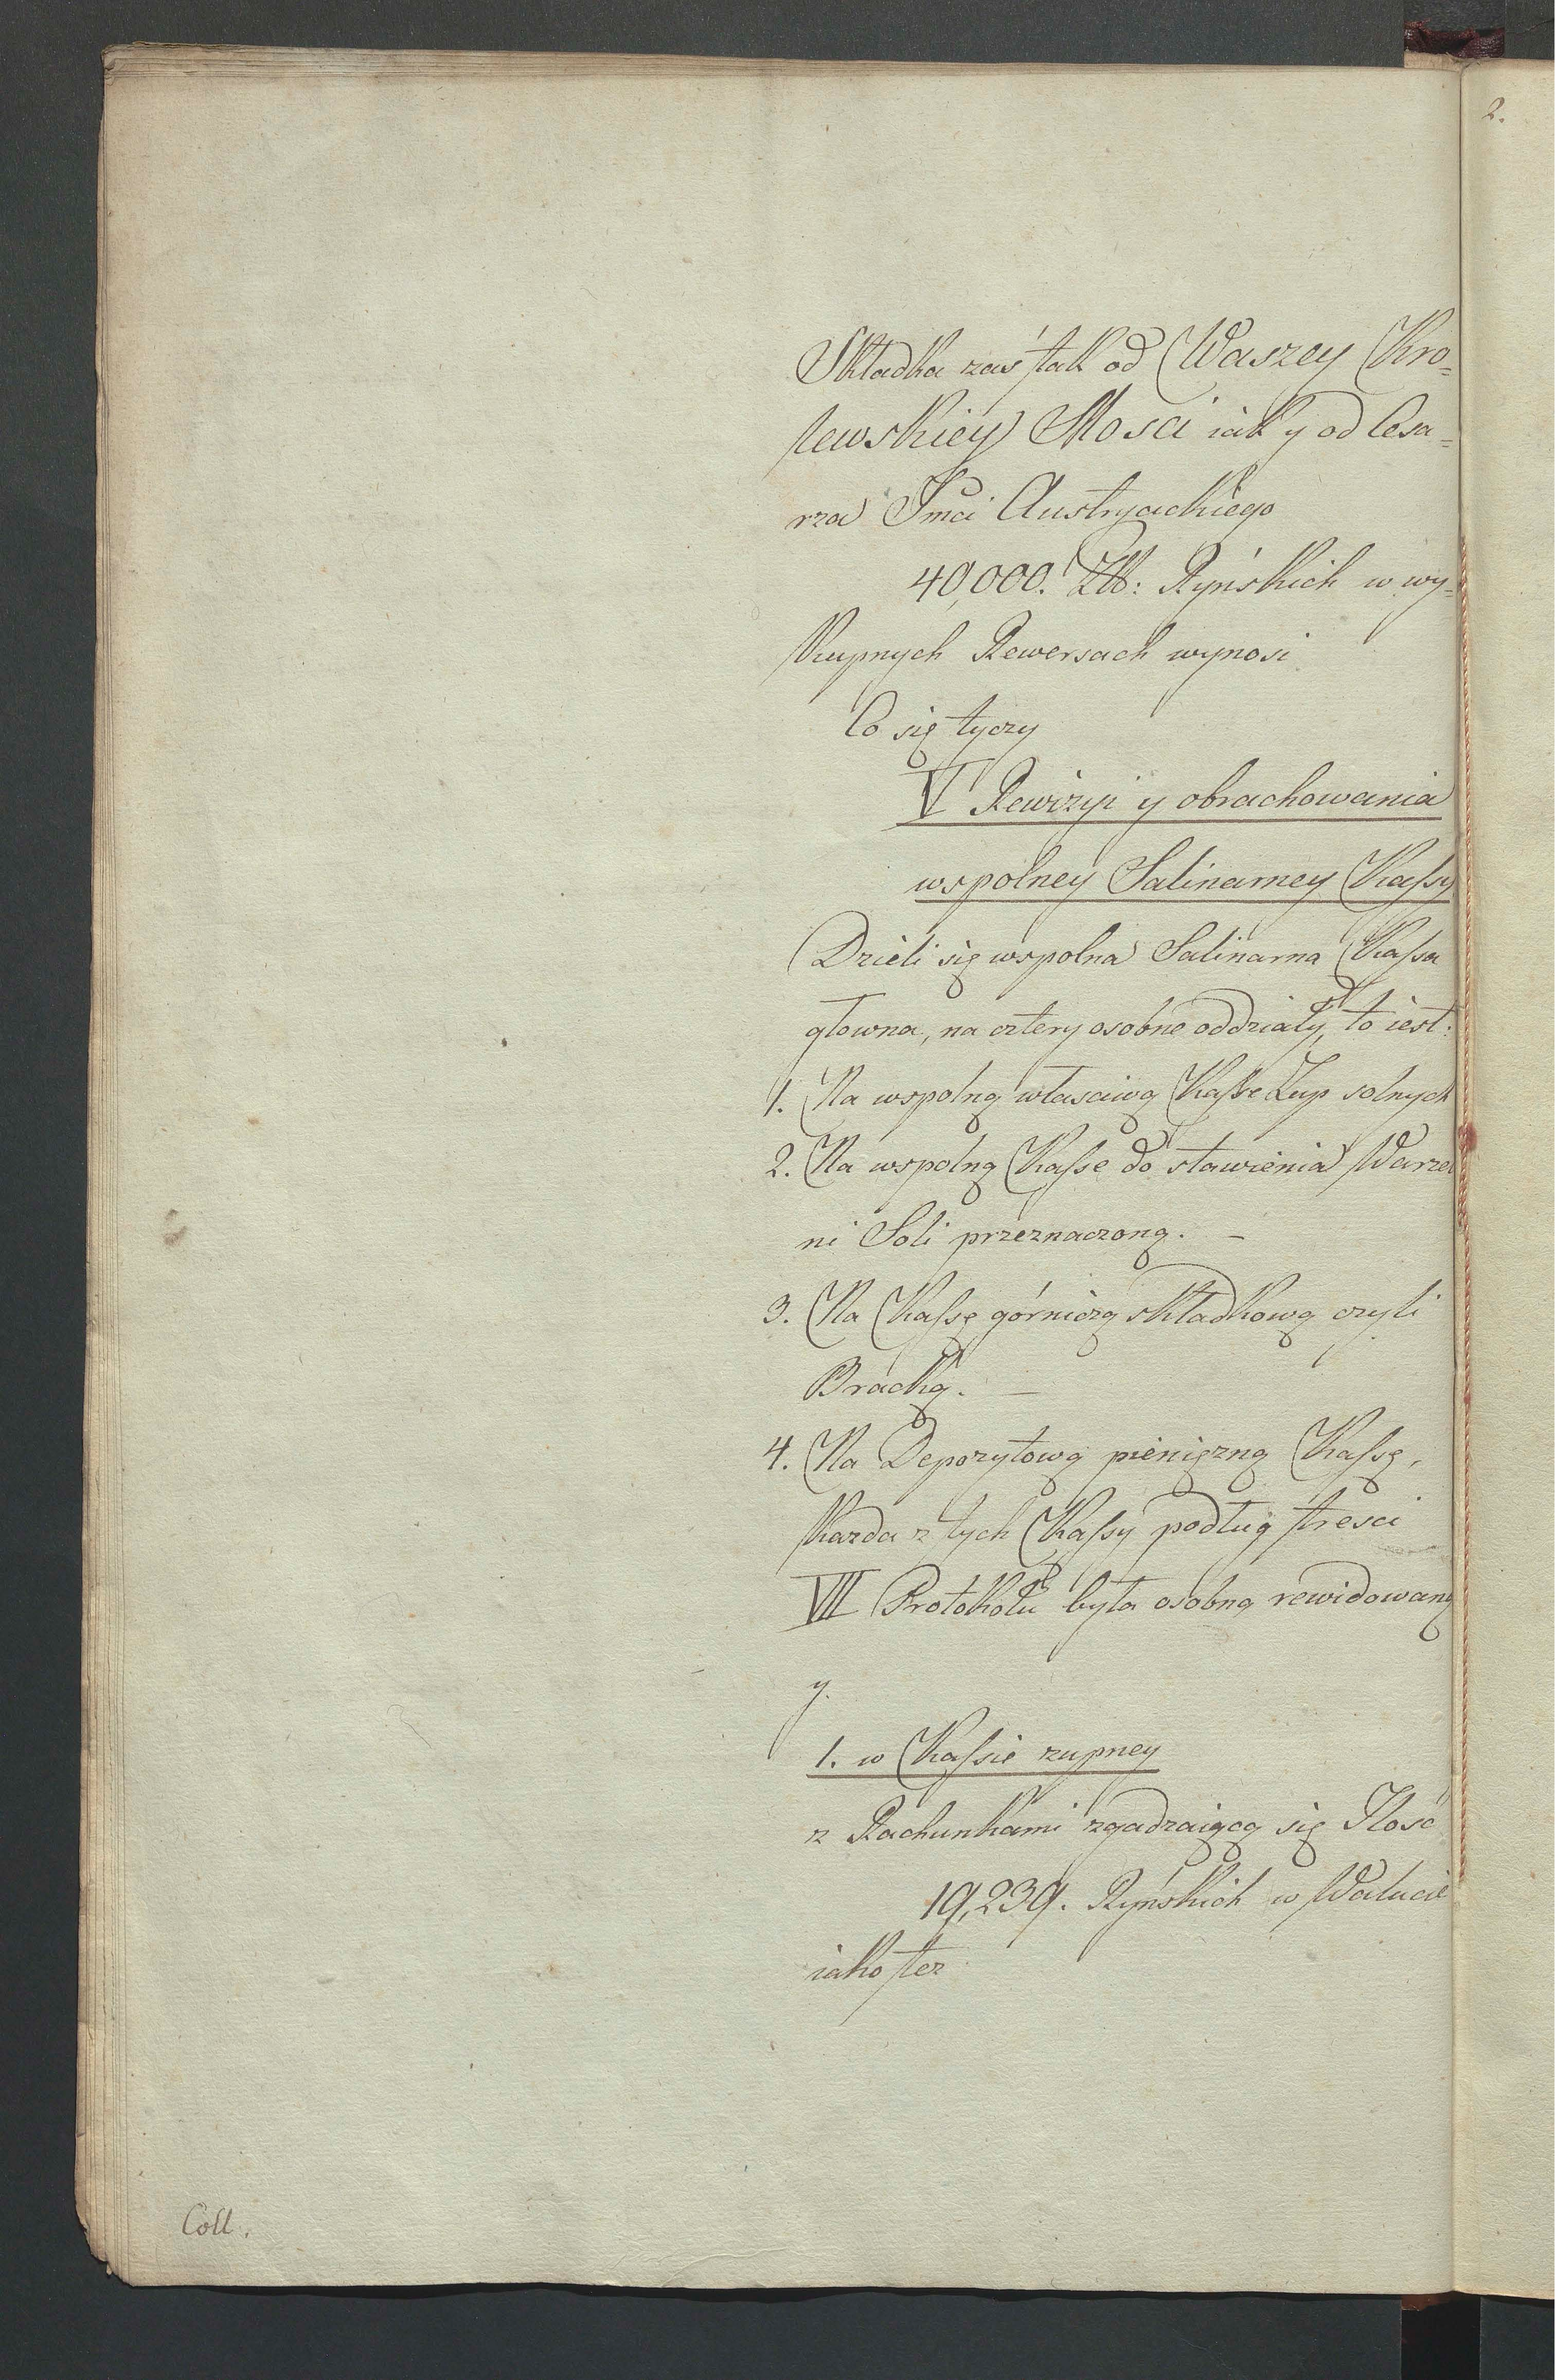 2.
Składka zaś tak od Waszey Kro=
lewskiey Mosci iak y od Cesa=
rza Jmci Austryackiego
40,000. Złł: Ryńskich w wy=
kupnych Rewersach wynosi
Co się tyczy
V Rewizyi y obrachowania
wspolney Salinarney Kassy
Dzieli się wspolna Salinarna Kassa
głowna, na cztery osobne oddziały, to iest:
1. Na wspolną własciwą Kasse Zup solnych
2. Na wspolną Kasse do stawienia Warzel
ni Soli przeznaczoną. –
3. Na Kassę górniczą składkową czyli
Bracką. –
4. Na Depozytową pieniężną Kassę,
Kazda z tych Kassy podług tresci
VII Protokołu była osobną rewidowaną
y.
1. w Kassie zupney
z Rachunkami zgadzaiącą się Ilosć
19,239. Ryńskich w Walucie
iako tez
Coll.